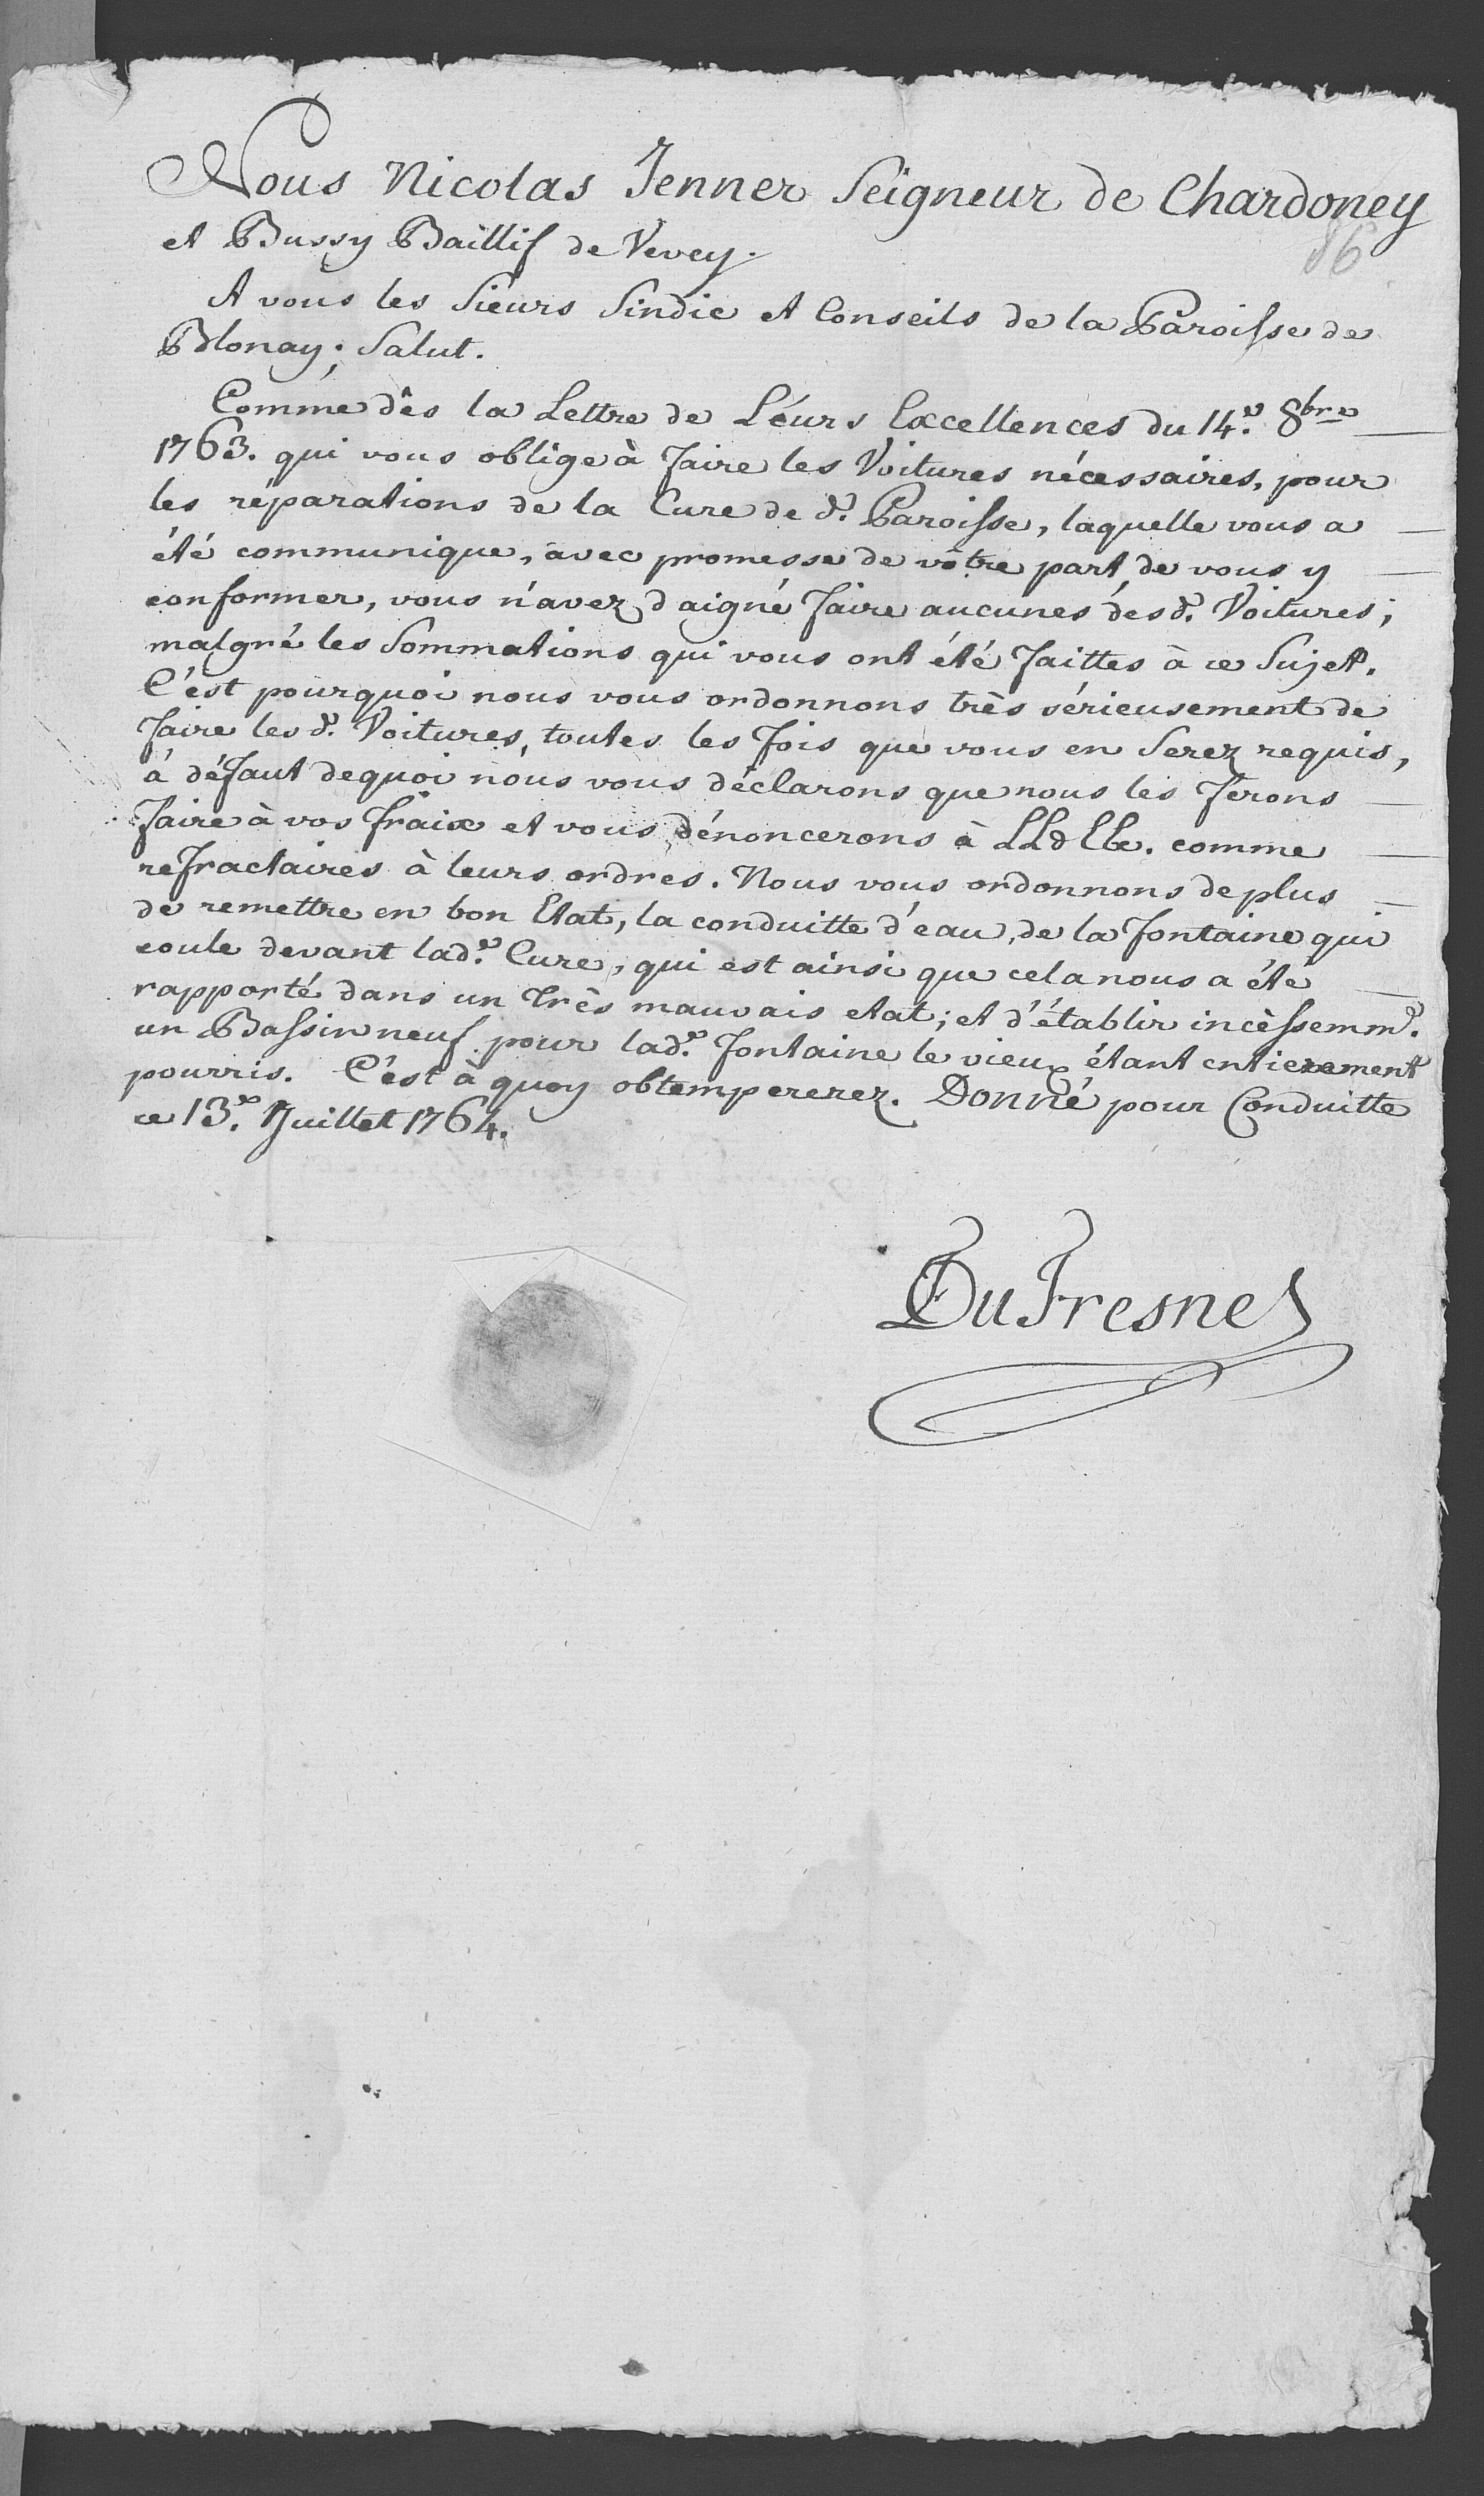 Nous Nicolas Jenner Seigneur de Chardoney
et Bussy Baillif de Vevey.
86
A vous les Sieurs Sindic et Conseils de la Paroisse de
Blonay; Salut.
Comme dès la Lettre de Léurs Excellences du 14.e 8bre
1763. qui vous oblige à faire les Voitures nécessaires, pour
les réparations de la Cure de d.e Paroisse, laquelle vous a
été communique, avec promesse de vôtre part, de vous y
conformer, vous n'avez daigné faire aucunes desd.e Voitures;
malgré les Sommations qui vous ont été faittes à ce Sujet.
C'est pourquoi nous vous ordonnons très sérieusement de
faire les d.e Voitures, toutes les fois que vous en Serez requis,
à défaut dequoi nous vous déclarons que nous les ferons
faire à vos fraix et vous dénoncerons à LLd EEe. comme
refractaires à leurs ordres. Nous vous ordonnons de plus
de remettre en bon Etat, la conduitte d'eau, de la fontaine qui
coule devant lad.e Cure, qui est ainsi que cela nous a été
rapporté dans un très mauvais etat; et d'établir incèssemmt.
un Bassin neuf pour lad.e fontaine le vieux étant entierement
pourris. C'est à quoy obtempererez. Donné pour Conduitte
ce 13.e Juillet 1764.
DuFresne